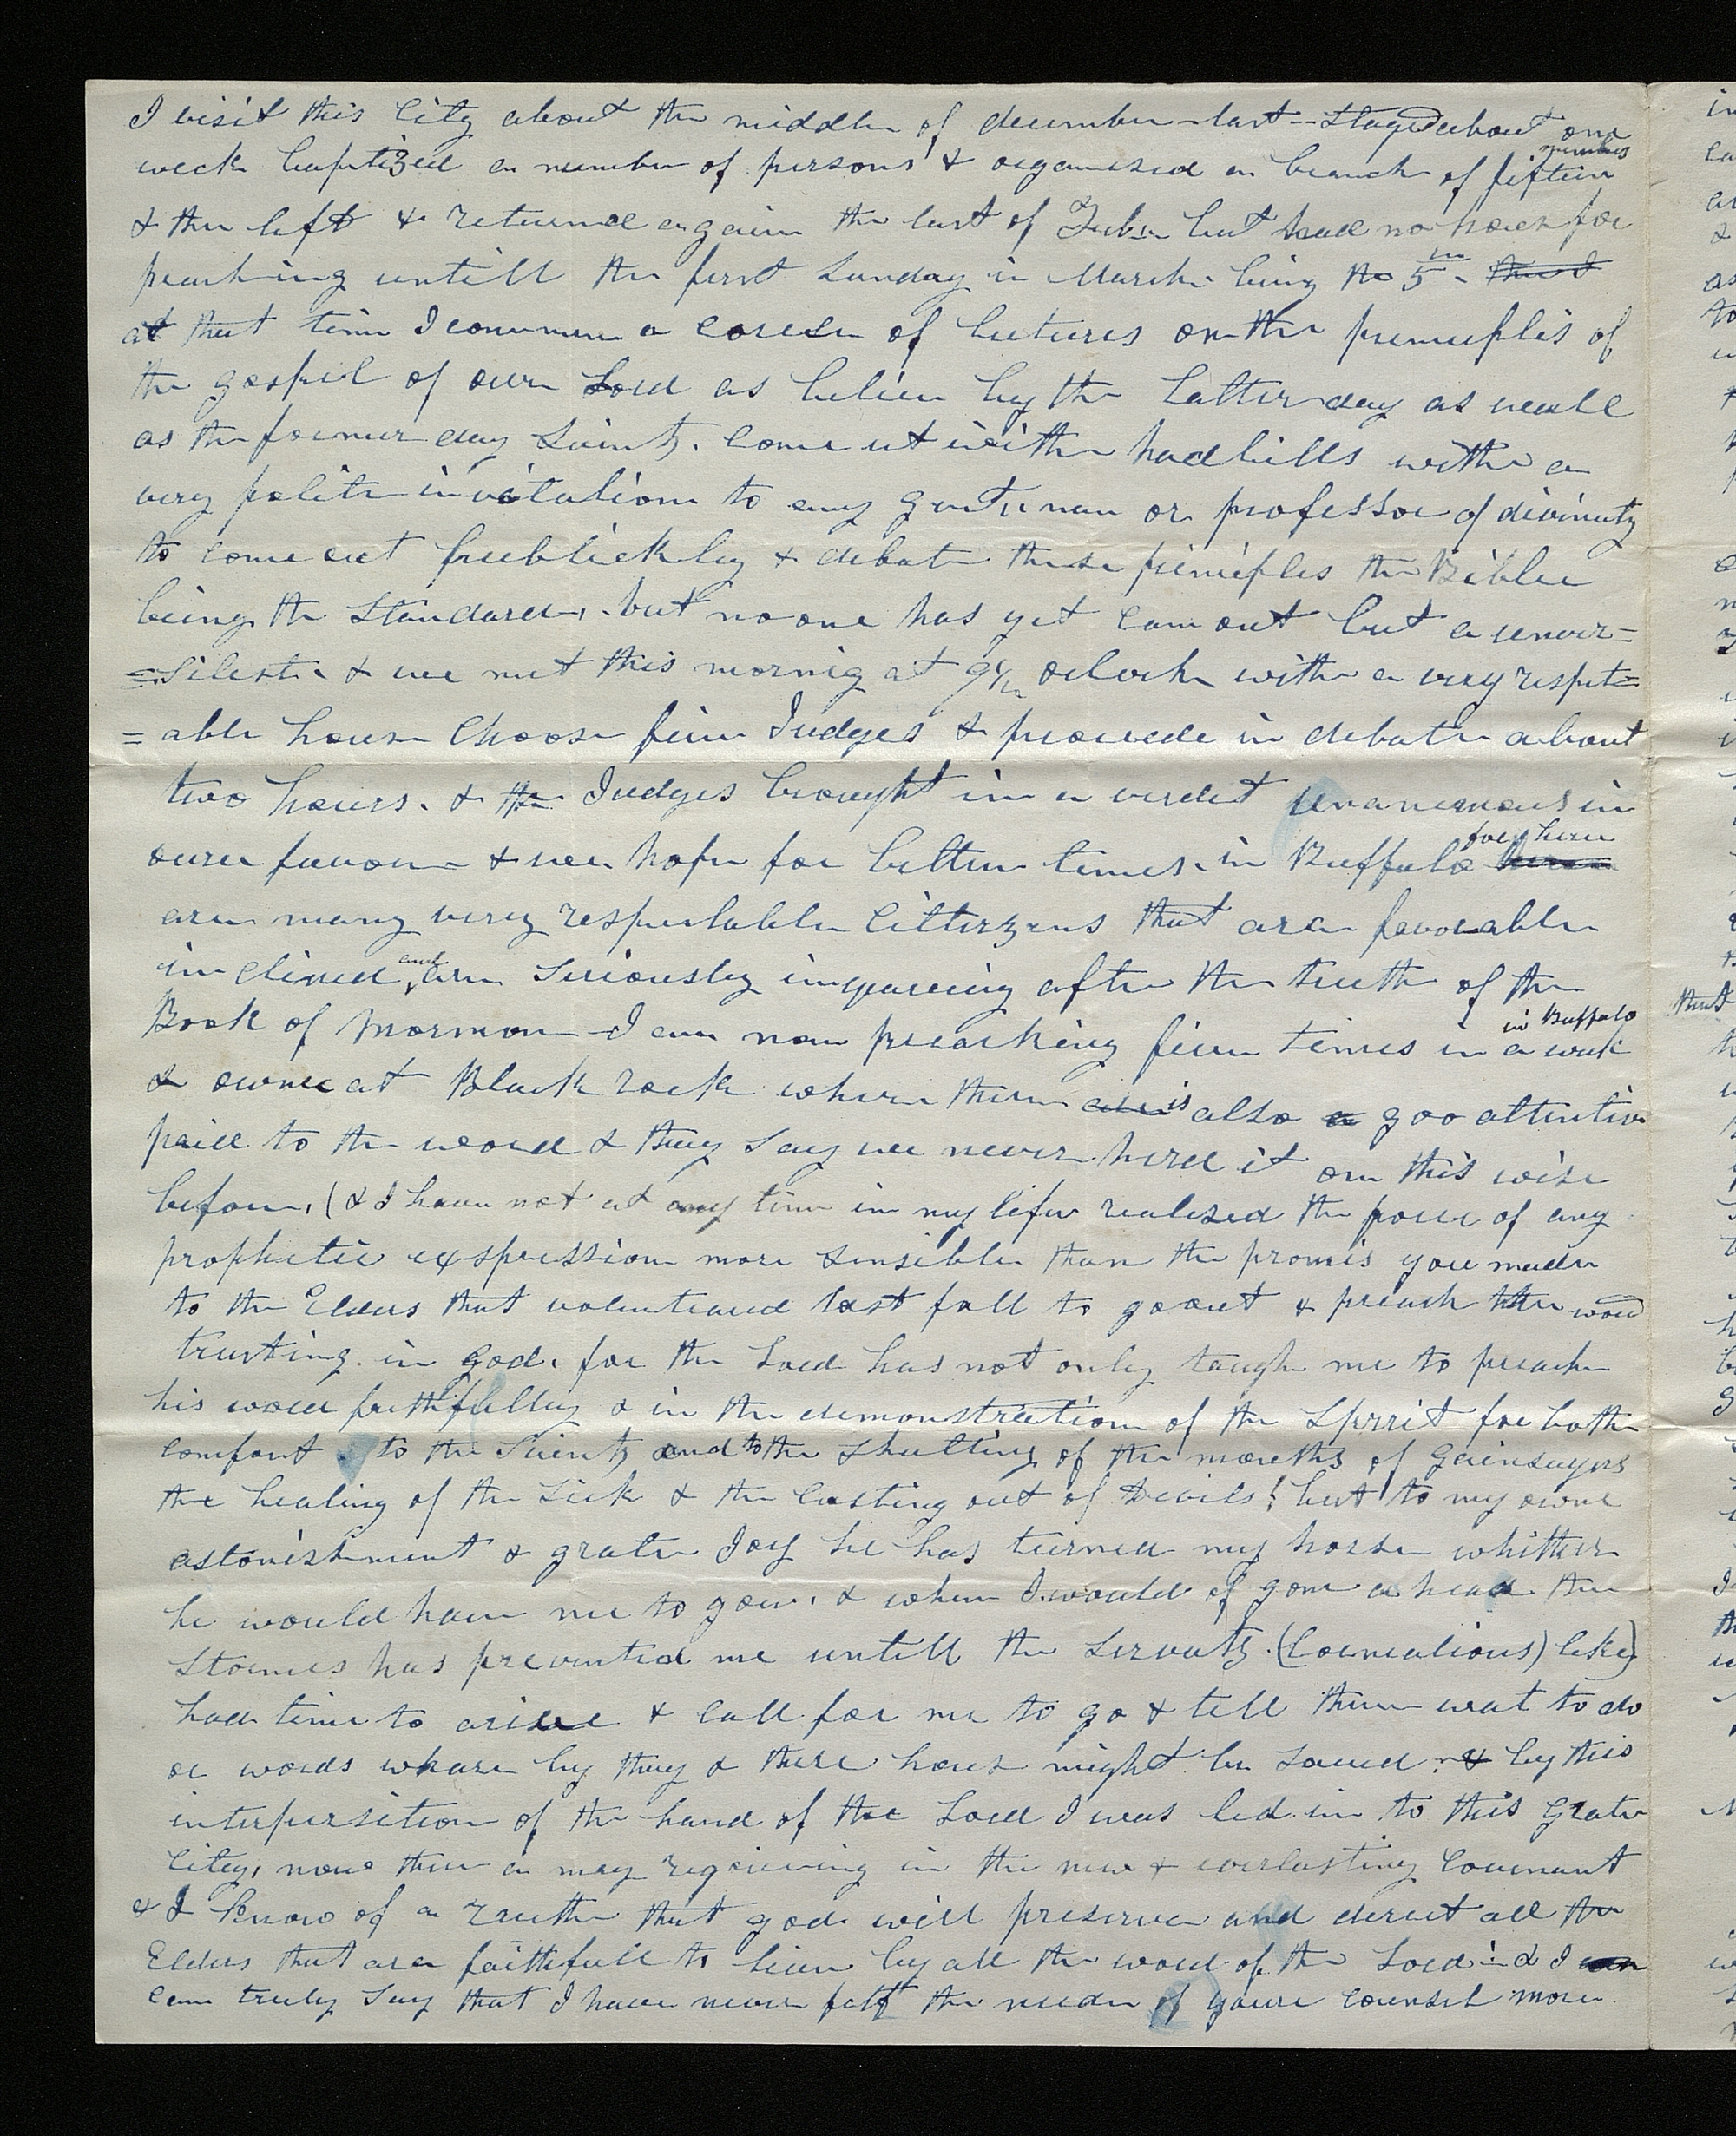 I visit this City about the middle of december last -- Stayed about one
week baptized a number of persons & organised a branch of fifteen members
& then left & returned again the last of Feb. but had no house for
preaching untill the first Sunday in March being the 5th
at that time I commence a corse of lectures on the principles of
the gospel of our Lord as believe by the Latter day as well
as the former day Saints. come ut with hadbills with a
very polite invitation to any gentleman or professor of divinity
to come out publickly & debate these principles the Bible
being the Standard, but no one has yet came out but a univer=
=Silest. & we met this mornig at 9 1/2 oclock with a very respet=
=able house Choose five Judges & procede in debate about
two hours. & the Judges brought in a verdict unanimous in
oure favour & we hope for better times in Buffalo for here
are many very respectable Cittizens that are favorable
inclined and are Seriously inquireing after the truth of the
Book of Mormon I am now preaching five times in a week in Buffalo
& ownce at Black rock where there is also goo attention
paid to the word & they Say we never herd it on this wise
before, (& I have not at any time in my life realized the power of any
prophetic exspression more sensible than the promis you made
to the Elders that volunteared last fall to go out & preach the word
trusting in god. for the Lord has not only taugh me to preach
his word faithfully & in the demonstration of the Spirit for both
comfort to the Saints and to the Shutting of the mouths of gainsayers
the healing of the Sick & the casting out of Devils! but to my owne
astonishment & grate Joy he has turned my horse whither
he would have me to gow, & when I would of gone a head the
Stormes has prevented me untill the Servants (Cornealious) like)
had time to arise & call for me to go & tell them wat to do
or words whare by they & there hous might be saved & by this
interposition of the hand of the Lord I was led in to this grate
City, now there a many rejoiceing in the new & everlasting Covenant
& I know of a truth that god will preserve and derect all the
Elders that are faithfull to live by all the word of the Lord! & I
can truly Say that I have never felt the neede of youre counsel more